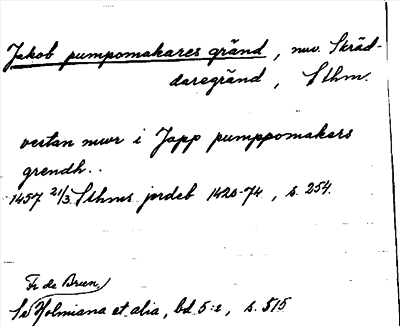 Jakob pumpomakares gränd, nuv. Skräd-
daregränd, Sthm.
vestan mwr i Japp pumppomakers
grendh..
1457 21/3. Sthms jordeb 1420-74, s. 254.
Fr de Brun,
Se Holmiana et alia, bd 5:2, s. 515